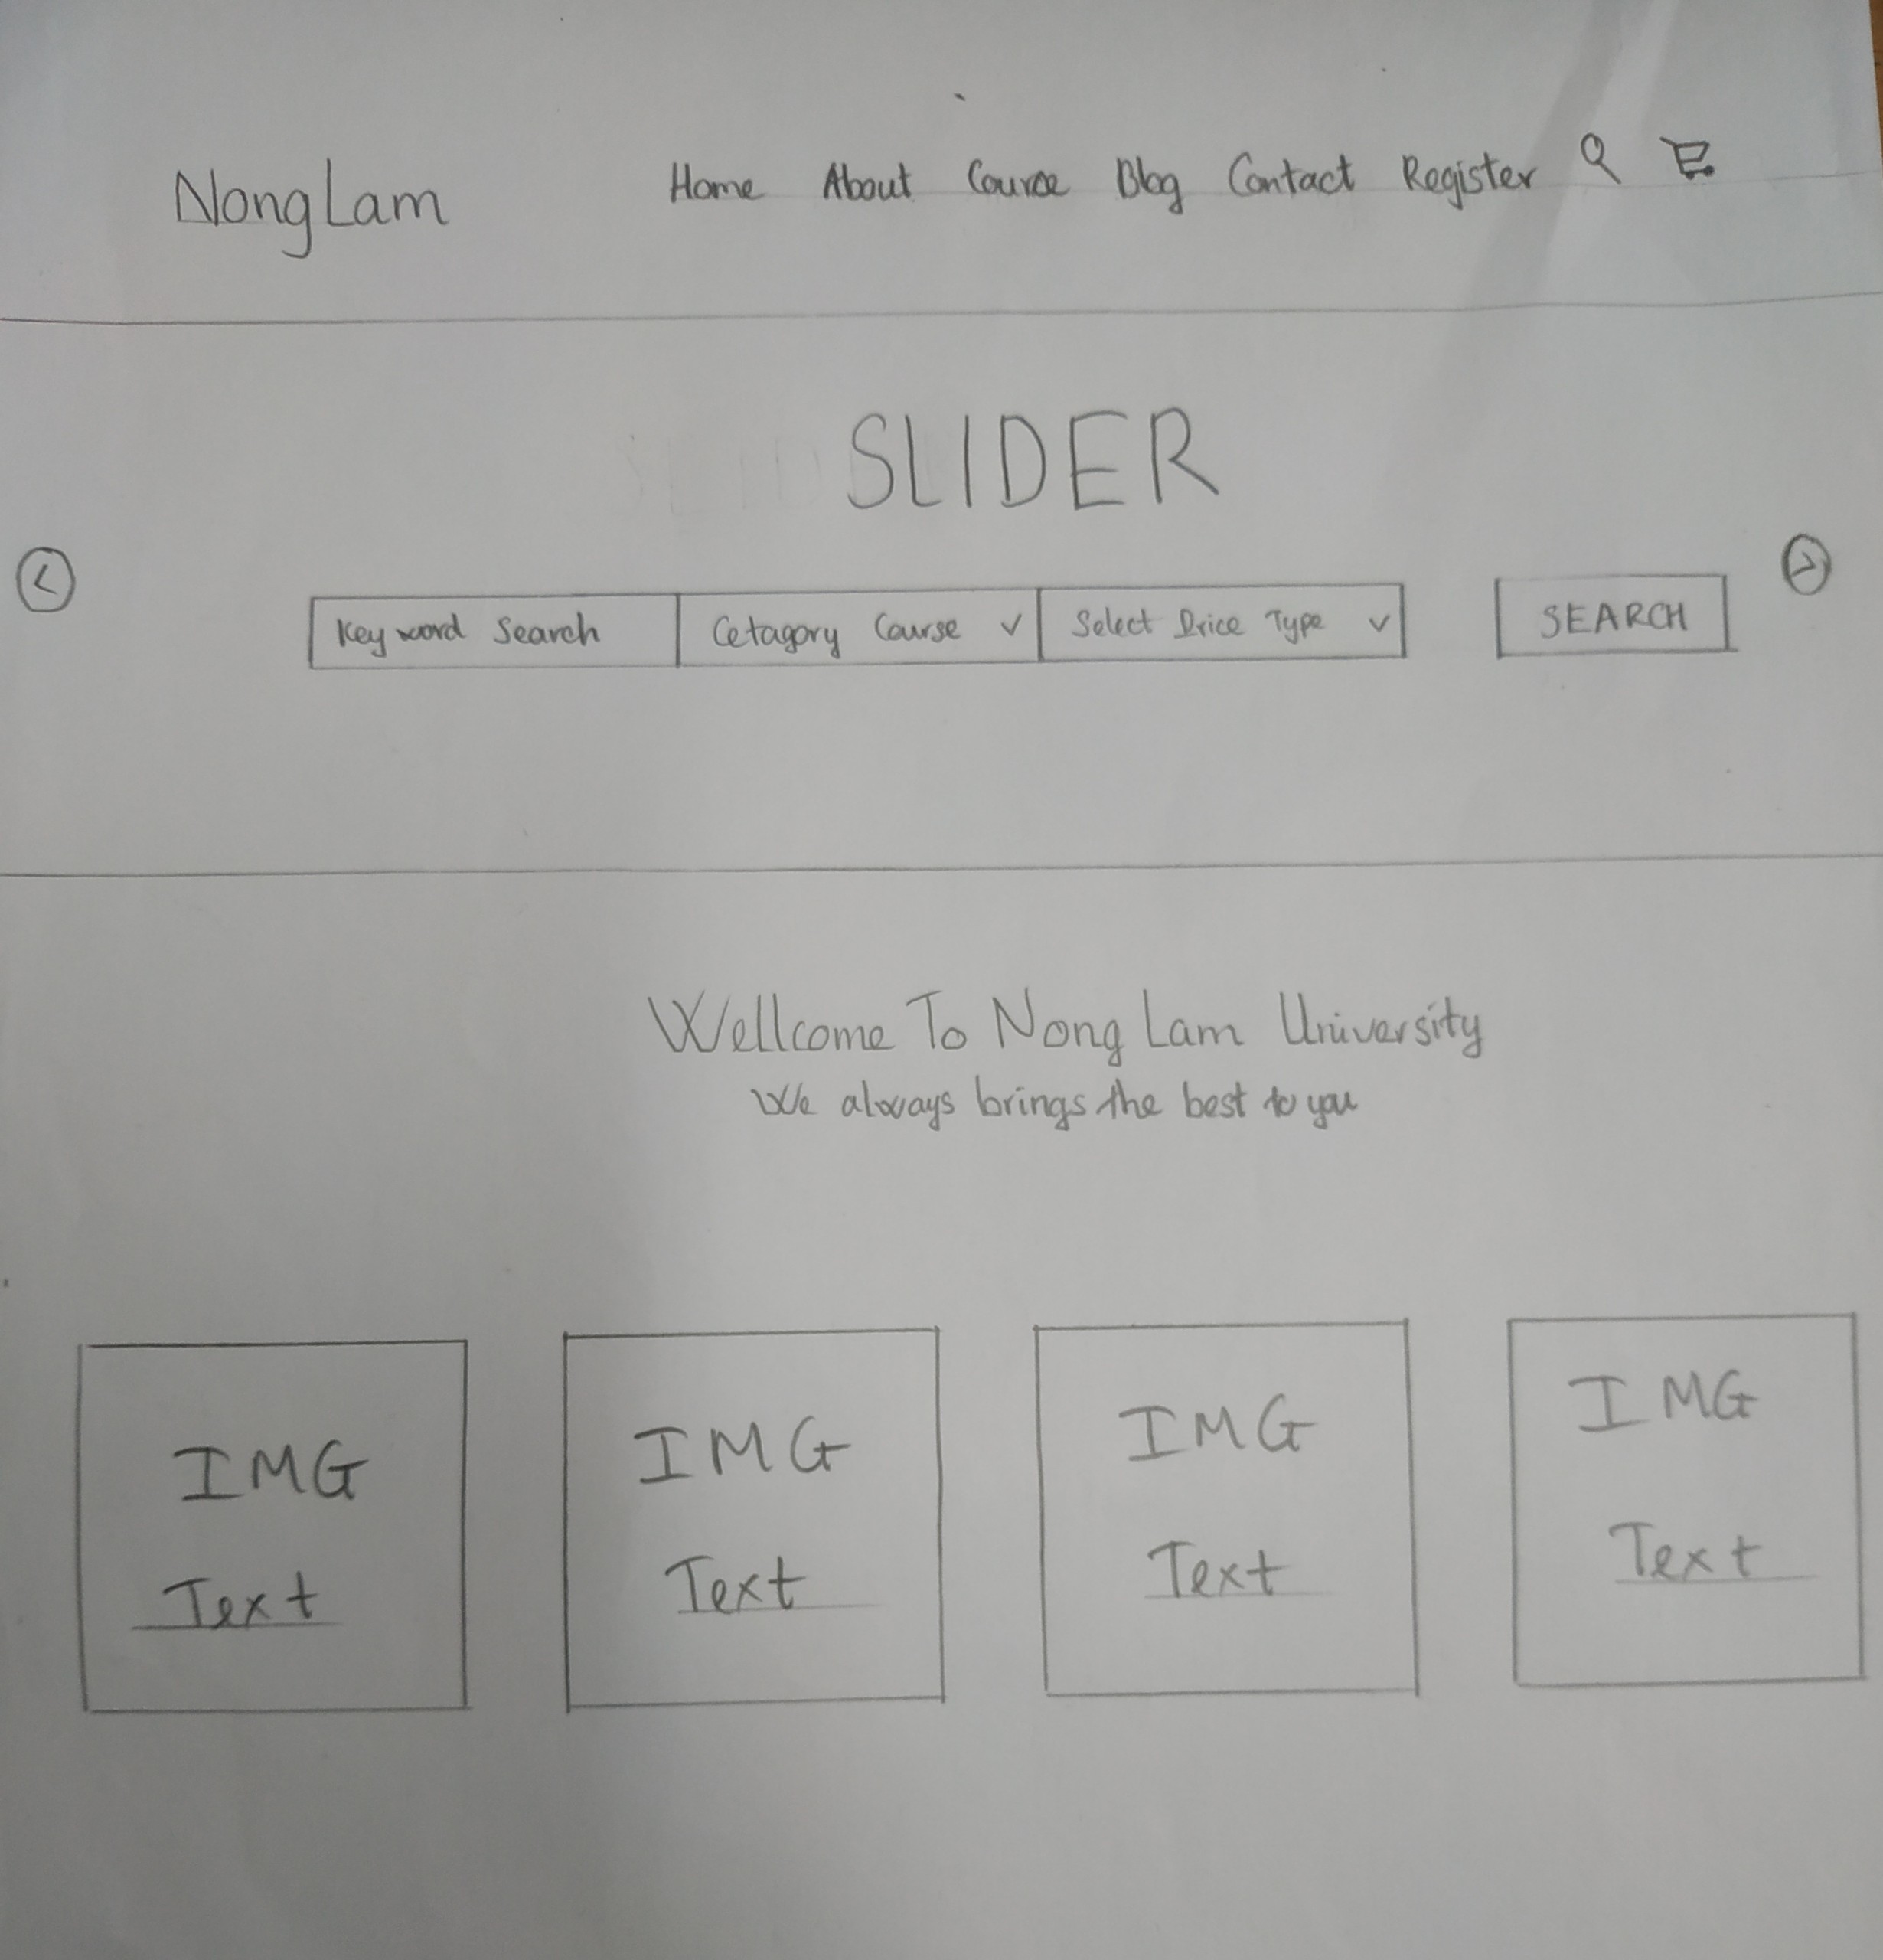 Nong Lam
Home About Course Blog Contact Register
SLIDER
Keyword Search Cetagory Course Select Price Type SEARCH
Wellcome To Nong Lam University
We always brings the best to you
IMG IMG IMG IMG
Text Text Text Text